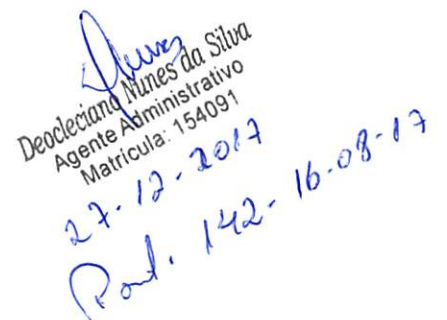 Deocleciano Nunes da Silva
Agente Administrativo
Matrícula: 154091
27-12-2017
Port. 142-16-08-17